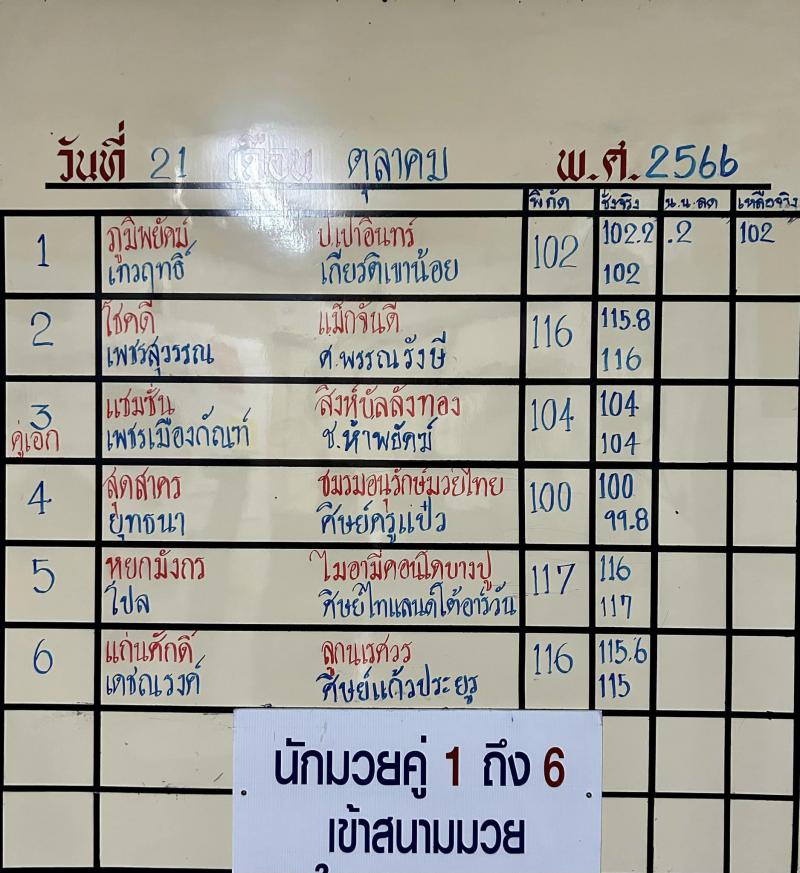 วันที่ 21 เดือน ตุลาคม พ.ศ. 2566
พิกัด ชั่งจริง น.น.ลด เหลือจริง
1 ภูมิพยัคฆ์ ป.เปาอินทร์ 102 102.2 .2 102
เทวฤทธิ์ เกียรติเขาน้อย 102
2 โชคดี แม็กจันดี 116 115.8
เพชรสุวรรณ ศ.พรรณรังษี 116
3 แซมซั่น สิงห์บัลลังทอง 104 104
คู่เอก เพชรเมืองกัณฑ์ ช.ห้าพยัคฆ์ 104
4 สุดสาคร ชมรมอนุรักษ์มวยไทย 100 100
ยุทธนา ศิษย์ครูแป๋ว 99.8
5 หยกมังกร ไมอามี่คอนโดบางปู 117 116
โปล ศิษย์ไทแลนด์ใต้อาร์วัน 117
6 แก่นศักดิ์ ลูกนเรศวร 116 115.6
เดชณรงค์ ศิษย์แก้วประยูร 115
นักมวยคู่ 1 ถึง 6
เข้าสนามมวย